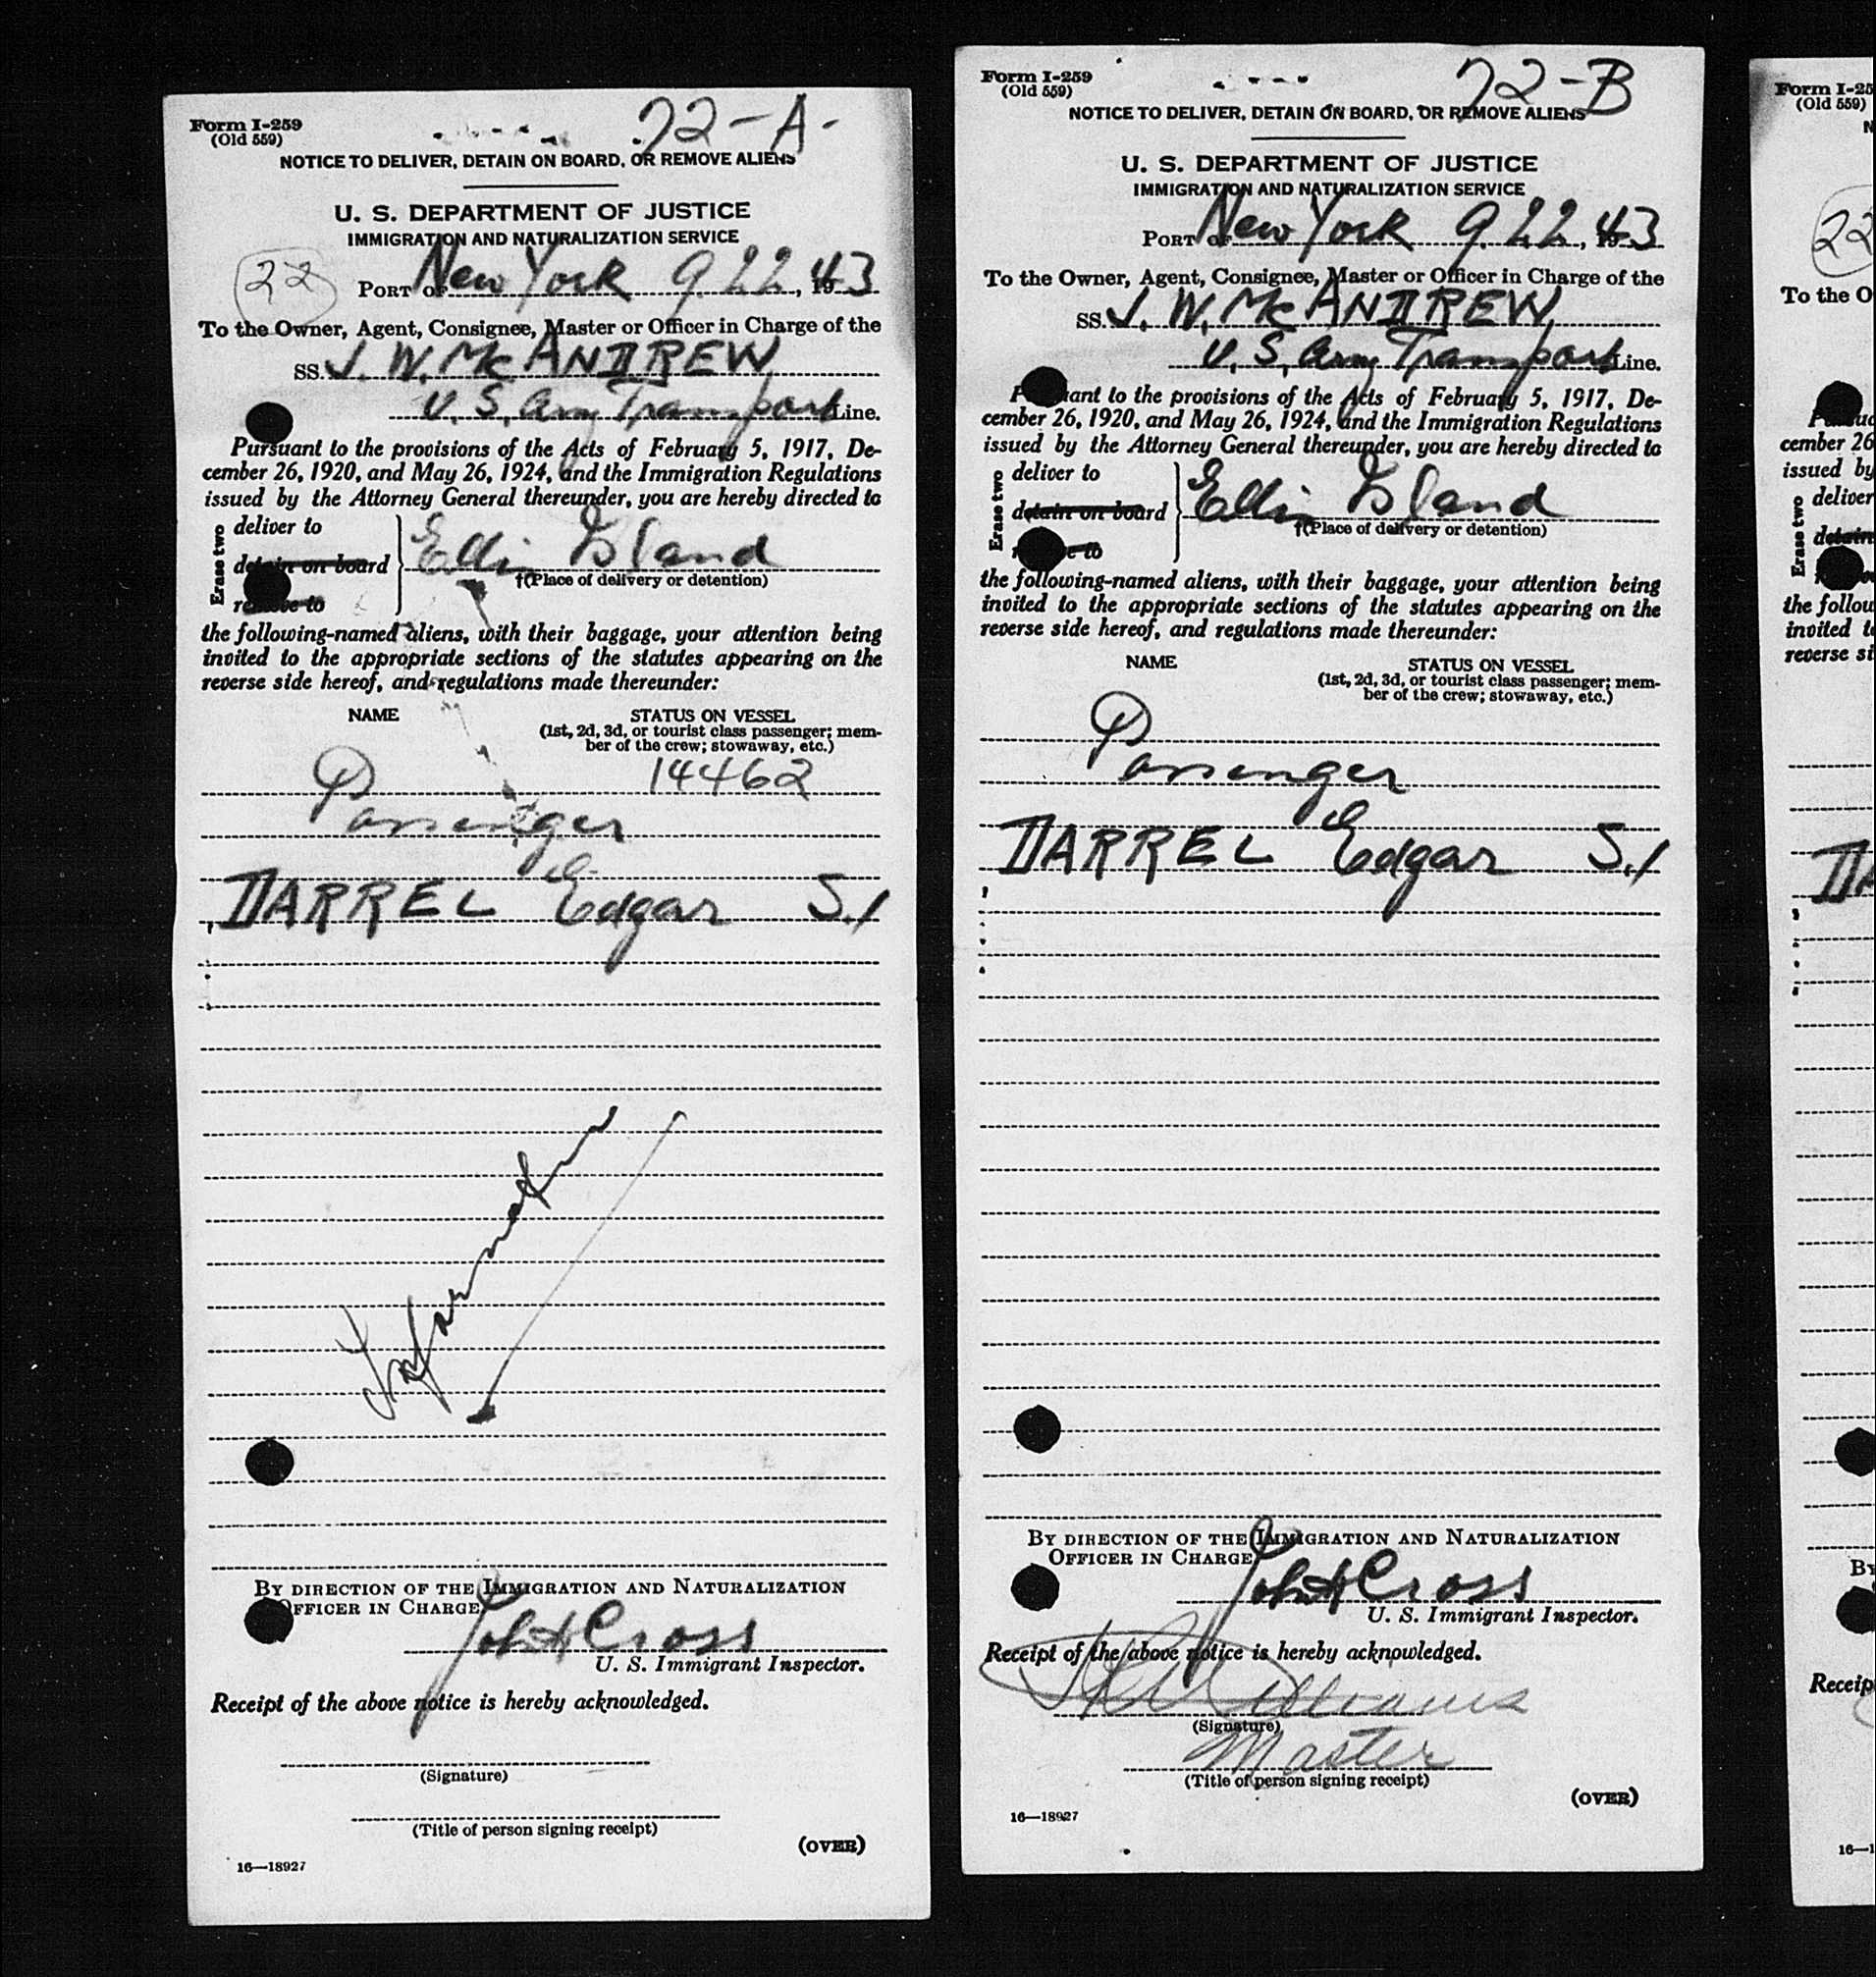 Form I-259
(Old 559)
72-A-
NOTICE TO DELIVER, DETAIN ON BOARD, OR REMOVE ALIENS
U. S. DEPARTMENT OF JUSTICE
IMMIGRATION AND NATURALIZATION SERVICE
22
PORT OF New York 9.22, 1943
To the Owner, Agent, Consignee, Master or Officer in Charge of the
SS. J. W. Mc ANDREW,
U. S. Army Transport Line.
Pursuant to the provisions of the Acts of February 5, 1917, De-
cember 26, 1920, and May 26, 1924, and the Immigration Regulations
issued by the Attorney General thereunder, you are hereby directed to
Erase two
deliver to
detain on board
remove to
Ellis Island
†(Place of delivery or detention)
the following-named aliens, with their baggage, your attention being
invited to the appropriate sections of the statutes appearing on the
reverse side hereof, and regulations made thereunder:
NAME STATUS ON VESSEL
(1st, 2d, 3d, or tourist class passenger; mem-
ber of the crew; stowaway, etc.)
14462
Passenger
DARREL Edgar S.I
BY DIRECTION OF THE IMMIGRATION AND NATURALIZATION
OFFICER IN CHARGE
John H Cross
U. S. Immigrant Inspector.
Receipt of the above notice is hereby acknowledged.
(Signature)
(Title of person signing receipt)
(OVER)
16—18927
Form I-259
(Old 559)
72-B
NOTICE TO DELIVER, DETAIN ON BOARD, OR REMOVE ALIENS
U. S. DEPARTMENT OF JUSTICE
IMMIGRATION AND NATURALIZATION SERVICE
PORT OF New York 9.22, 1943
To the Owner, Agent, Consignee, Master or Officer in Charge of the
SS. J. W. Mc ANDREW,
U. S. Army Transport Line.
Pursuant to the provisions of the Acts of February 5, 1917, De-
cember 26, 1920, and May 26, 1924, and the Immigration Regulations
issued by the Attorney General thereunder, you are hereby directed to
Erase two
deliver to
detain on board
remove to
Ellis Island
†(Place of delivery or detention)
the following-named aliens, with their baggage, your attention being
invited to the appropriate sections of the statutes appearing on the
reverse side hereof, and regulations made thereunder:
NAME STATUS ON VESSEL
(1st, 2d, 3d, or tourist class passenger; mem-
ber of the crew; stowaway, etc.)
Passenger
DARREL Edgar S.I
BY DIRECTION OF THE IMMIGRATION AND NATURALIZATION
OFFICER IN CHARGE
John H Cross
U. S. Immigrant Inspector.
Receipt of the above notice is hereby acknowledged.
Williams
(Signature)
Master
(Title of person signing receipt)
(OVER)
16—18927
Form I-25
(Old 559)
N
22
To the O
cember 26
issued by
Erase two
deliver
detain
the follow
invited t
reverse si
DA
By
Receip
16—1